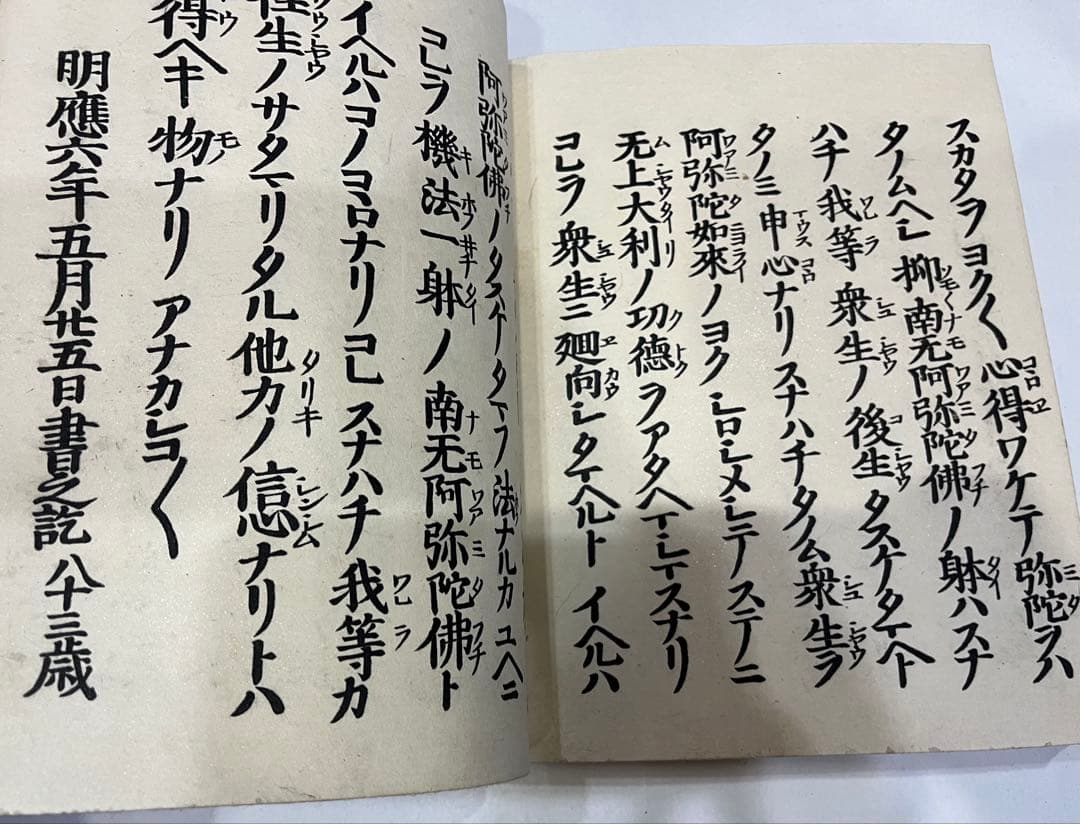 スカタヲヨク〱心得ワケテ弥陀ヲハ
タノムヘシ抑南无阿弥陀佛ノ躰ハスナ
ハチ我等衆生ノ後生タスケタマヘト
タノミ申心ナリスナハチタノム衆生ヲ
阿弥陀如來ノヨクシロシメシテステニ
无上大利ノ功德ヲアタヘマシマスナリ
コレヲ衆生ニ廻向シタマヘルトイヘルハ
阿弥陀佛ノタスケタマフ法ナルカユヘニ
コレヲ機法一躰ノ南无阿弥陀佛ト
イヘルハコノコヽロナリコレスナハチ我等カ
往生ノサタマリタル他力ノ信心ナリトハ
得ヘキ物ナリアナカシコ〱
明應六年五月廿五日書之訖八十三歳